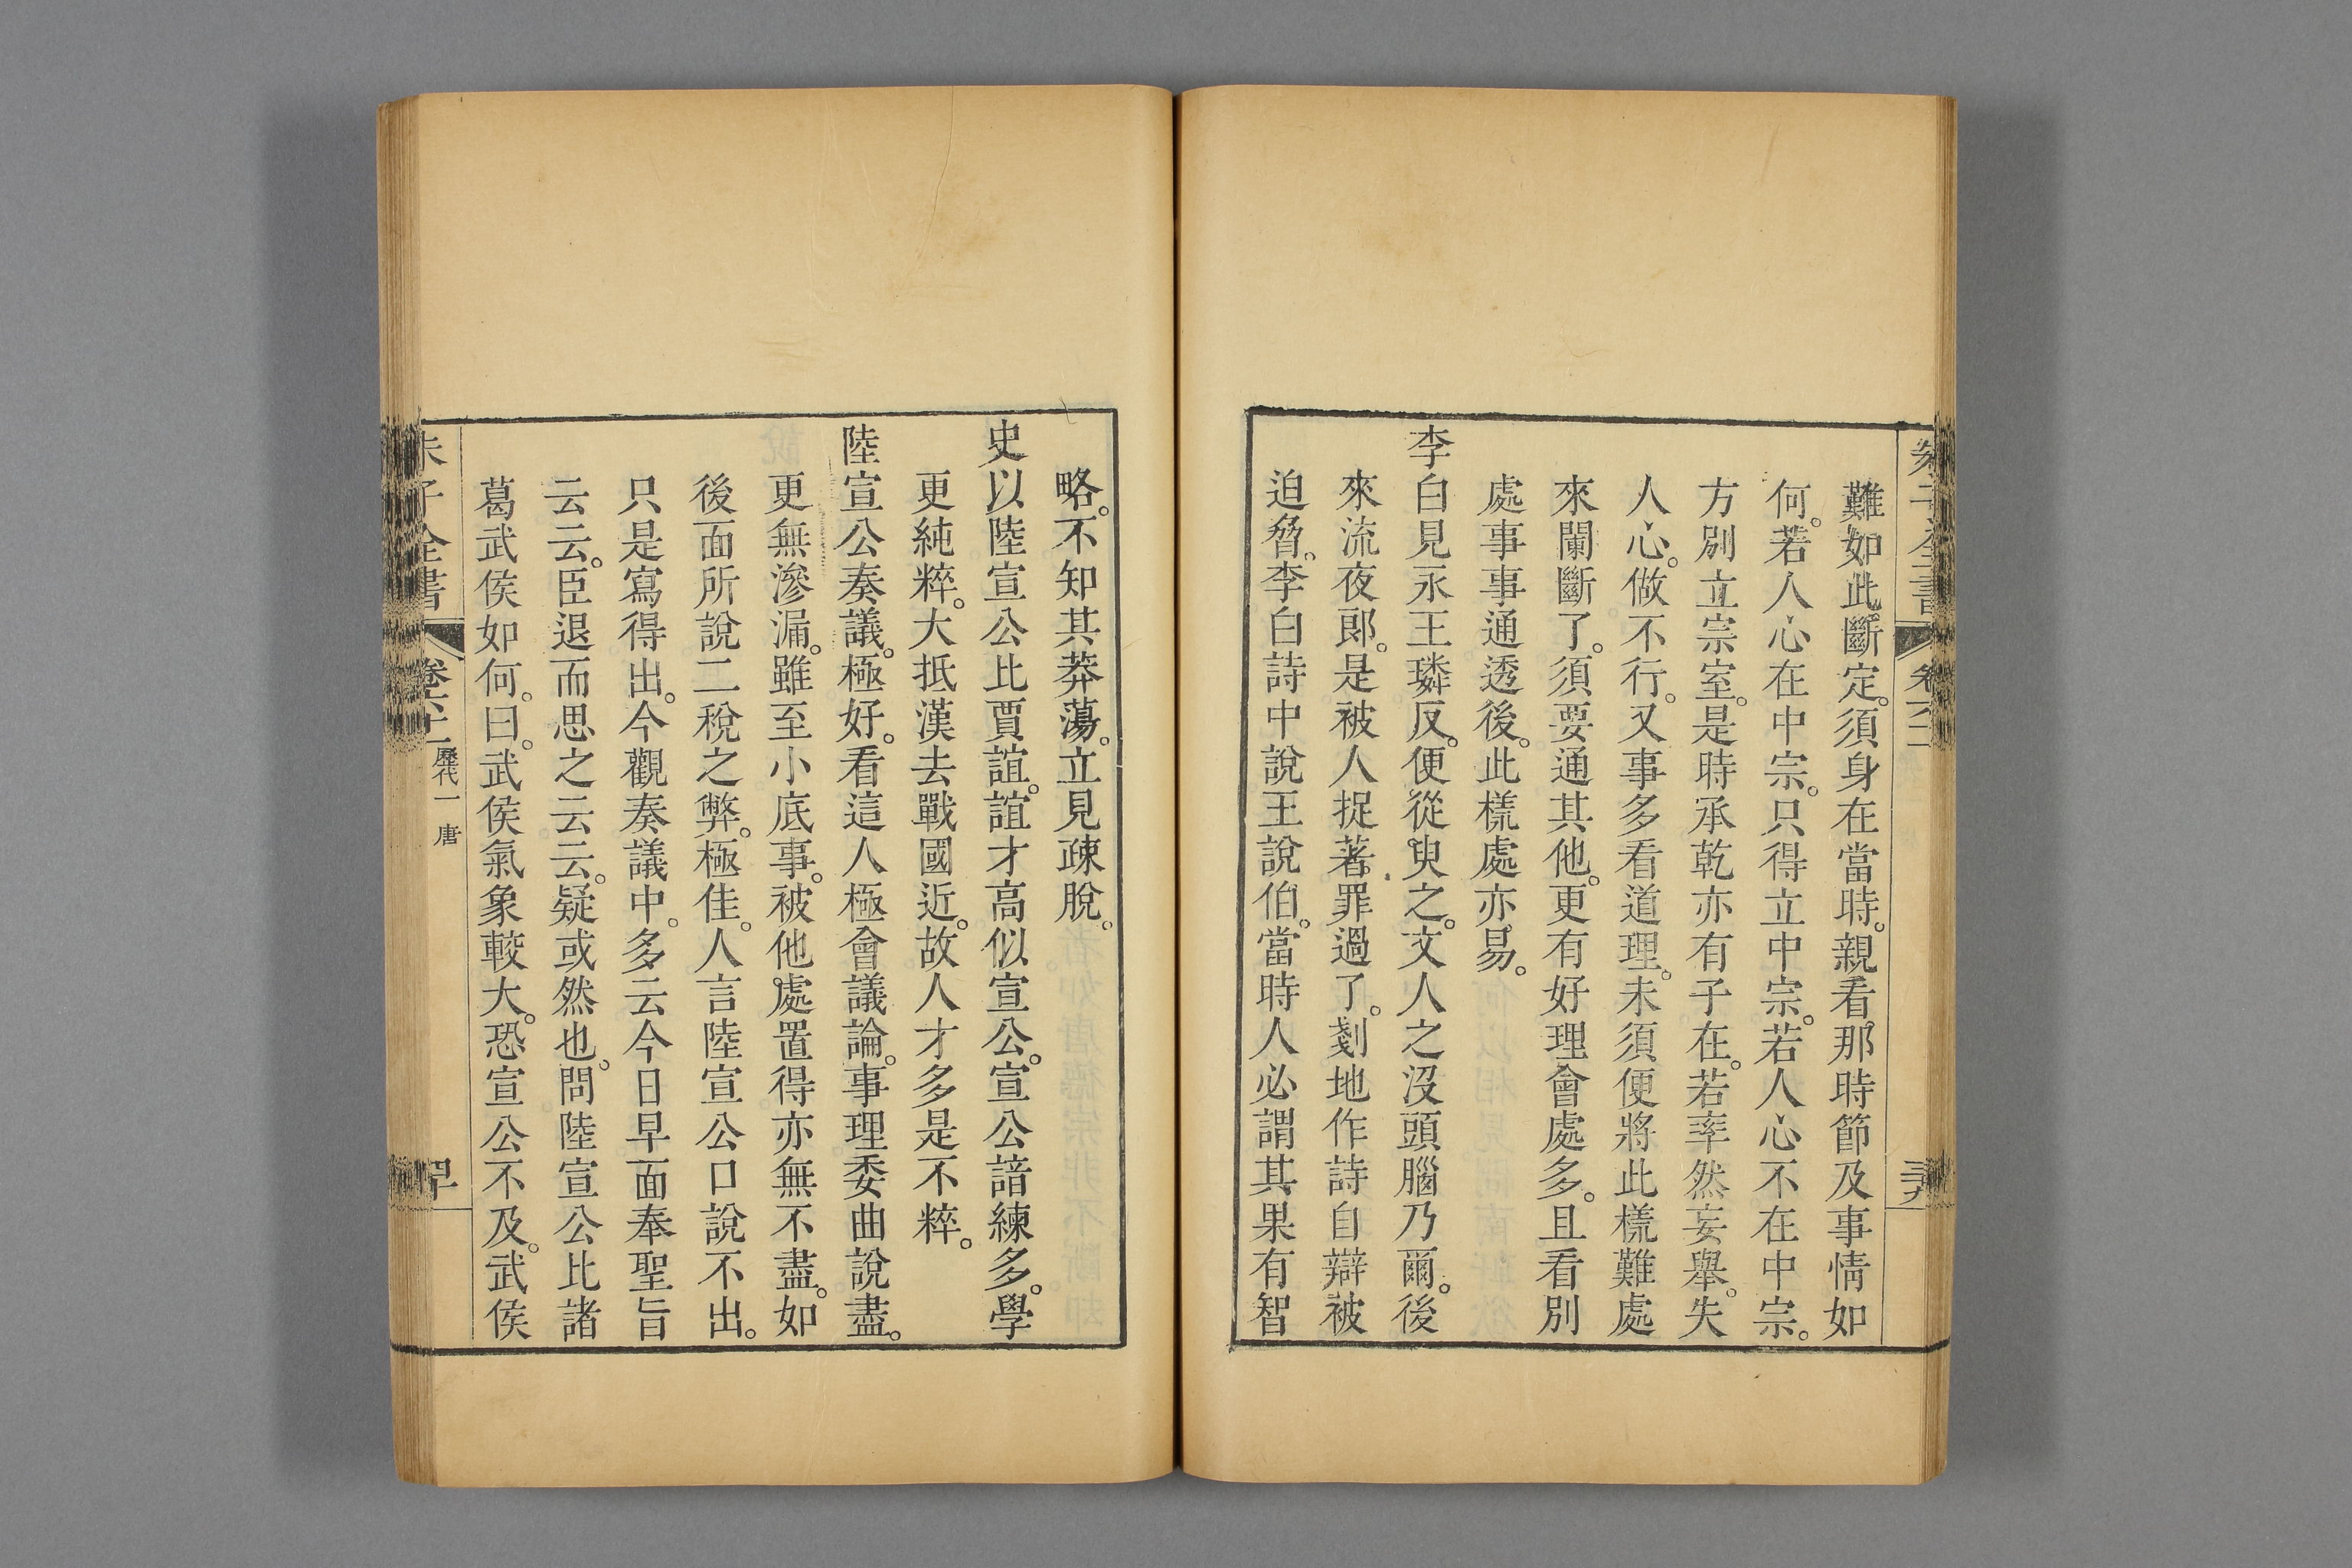 難如此斷定。須身在當時。親看那時節及事情如
何。若人心在中宗。只得立中宗。若人心不在中宗。
方別立宗室。是時承乾亦有子在。若率然妄舉。失
人心。做不行。又事多看道理。未須便將此樣難處
來闌斷了。須要通其他。更有好理會處多。且看別
處事事通透後。此樣處亦易。
李白見永王璘反。便從臾之。文人之沒頭腦乃爾。後
來流夜郎。是被人捉著罪過了。剗地作詩自辯被
迫脅。李白詩中說王說伯。當時人必謂其果有智
略。不知其莽蕩。立見疎脫。
史以陸宣公比賈誼。誼才高似宣公。宣公諳練多。學
更純粹。大抵漢去戰國近。故人才多是不粹。
陸宣公奏議。極好。看這人極會議論。事理委曲說盡。
更無滲漏。雖至小底事。被他處置得亦無不盡。如
後面所說二稅之弊。極佳。人言陸宣公口說不出。
只是寫得出。今觀奏議中。多云今日早面奉聖旨
云云。臣退而思之云云。疑或然也。問陸宣公比諸
葛武侯如何。曰。武侯氣象較大。恐宣公不及。武侯
朱子全書 歷代一 唐